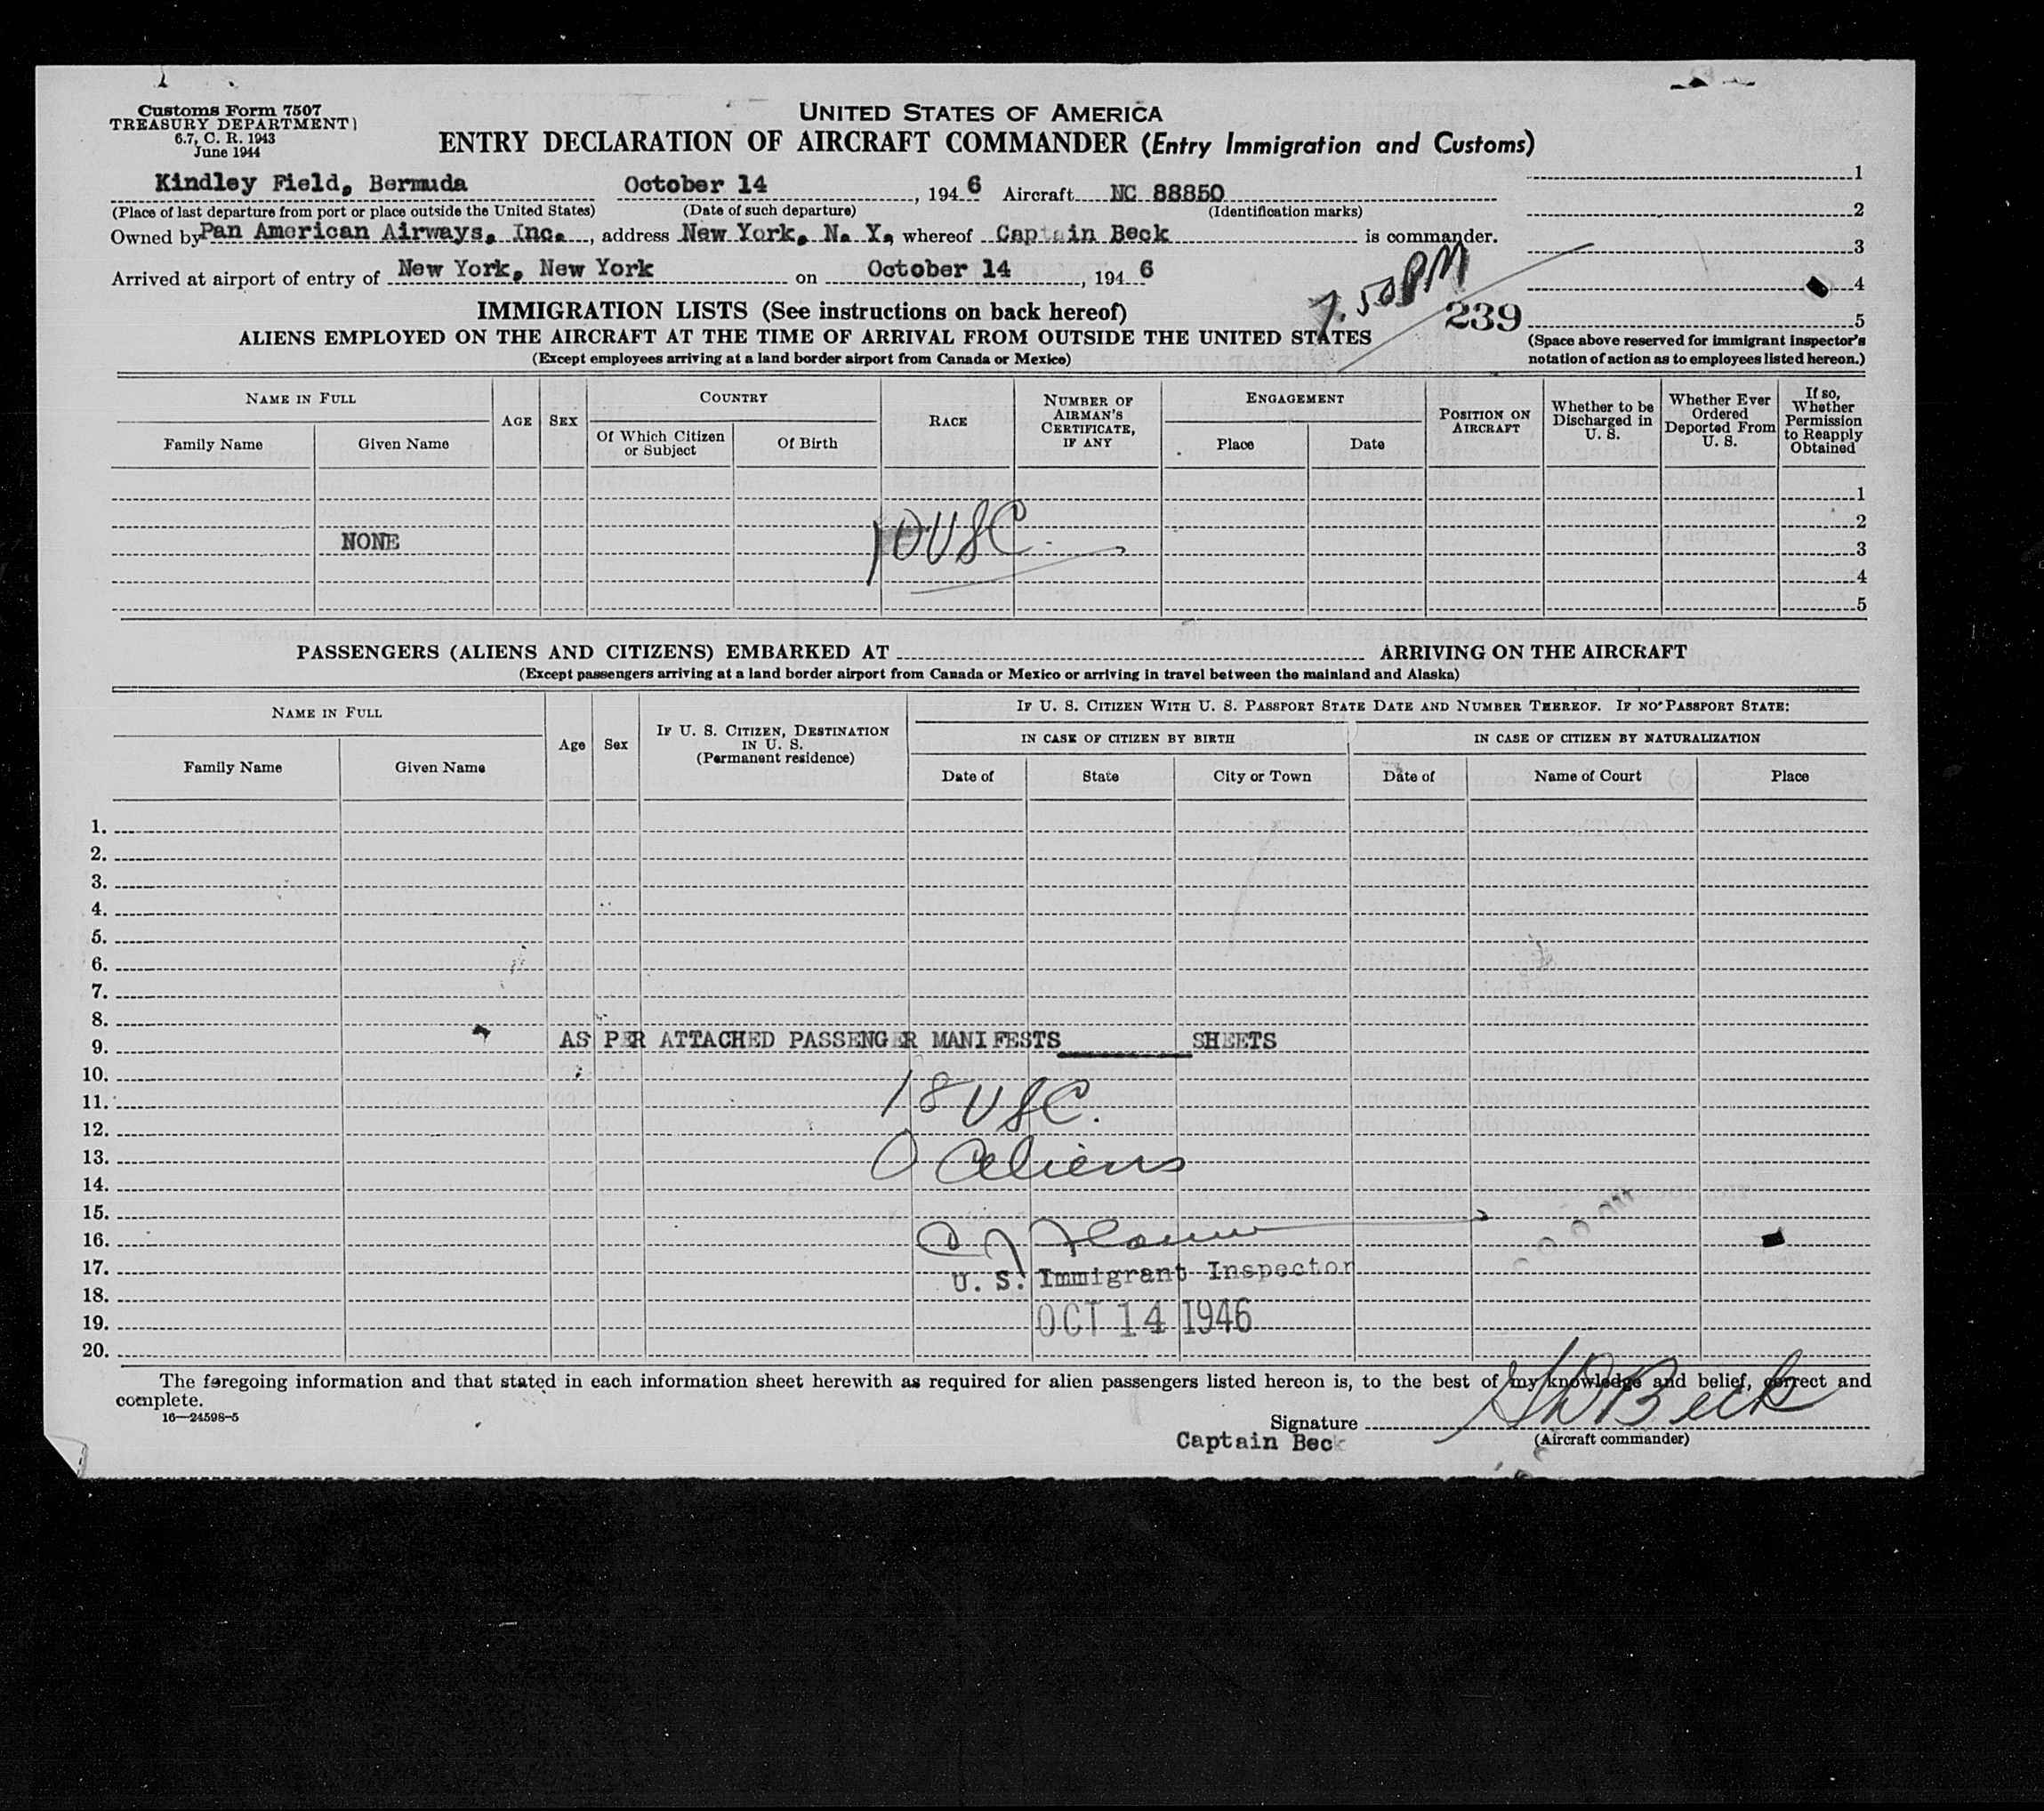 Customs Form 7507
TREASURY DEPARTMENT)
6.7, C. R. 1943
June 1944
UNITED STATES OF AMERICA
ENTRY DECLARATION OF AIRCRAFT COMMANDER (Entry Immigration and Customs)
Kindley Field, Bermuda October 14, 1946 Aircraft NC 88850
(Place of last departure from port or place outside the United States) (Date of such departure) (Identification marks)
Owned by Pan American Airways, Inc., address New York, N. Y, whereof Captain Beck is commander.
Arrived at airport of entry of New York, New York on October 14, 1946
7.50 PM
239
1
2
3
4
5
(Space above reserved for immigrant inspector's notation of action as to employees listed hereon.)
IMMIGRATION LISTS (See instructions on back hereof)
ALIENS EMPLOYED ON THE AIRCRAFT AT THE TIME OF ARRIVAL FROM OUTSIDE THE UNITED STATES
(Except employees arriving at a land border airport from Canada or Mexico)
NAME IN FULL
Family Name Given Name
AGE
SEX
COUNTRY
Of Which Citizen or Subject
Of Birth
RACE
NUMBER OF AIRMAN'S CERTIFICATE, IF ANY
ENGAGEMENT
Place Date
POSITION ON AIRCRAFT
Whether to be Discharged in U. S.
Whether Ever Ordered Deported From U. S.
If so, Whether Permission to Reapply Obtained
1
2
NONE 3
10 USC.
4
5
PASSENGERS (ALIENS AND CITIZENS) EMBARKED AT ARRIVING ON THE AIRCRAFT
(Except passengers arriving at a land border airport from Canada or Mexico or arriving in travel between the mainland and Alaska)
NAME IN FULL
Family Name Given Name
Age
Sex
IF U. S. CITIZEN, DESTINATION IN U. S.
(Permanent residence)
IF U. S. CITIZEN WITH U. S. PASSPORT STATE DATE AND NUMBER THEREOF. IF NO PASSPORT STATE:
IN CASE OF CITIZEN BY BIRTH
Date of State City or Town
IN CASE OF CITIZEN BY NATURALIZATION
Date of Name of Court Place
1.
2.
3.
4.
5.
6.
7.
8.
9. AS PER ATTACHED PASSENGER MANIFESTS SHEETS
10.
11. 18 USC.
12.
13. 0 Aliens
14.
15.
16.
17. U. S. Immigrant Inspector
18.
19. OCT 14 1946
20.
The foregoing information and that stated in each information sheet herewith as required for alien passengers listed hereon is, to the best of my knowledge and belief, correct and
complete.
16—24598-5
Signature Beck
Captain Beck (Aircraft commander)